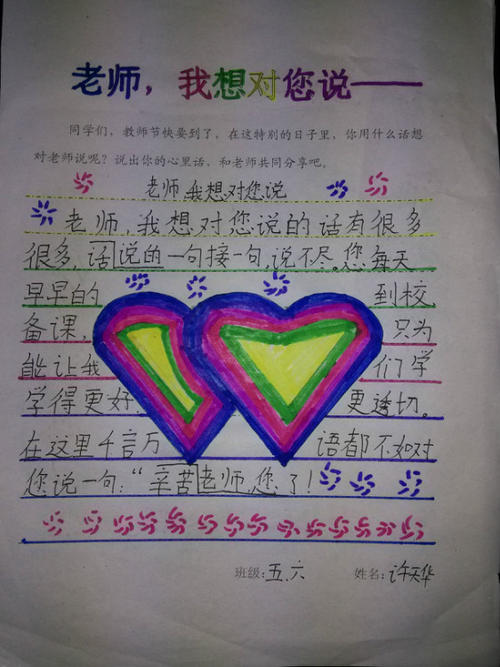 老师，我想对您说——
同学们，教师节快要到了，在这特别的日子里，你用什么话想
对老师说呢？说出你的心里话、和老师共同分享吧。
老师我想对您说
老师，我想对您说的话有很多
很多，话说的一句接一句，说不尽。您每天
早早的到校，
备课，只为
能让我们学
学得更好，更透切。
在这里千言万语都不如对
您说一句：“辛苦老师，您了！
班级：五.六 姓名：许天华